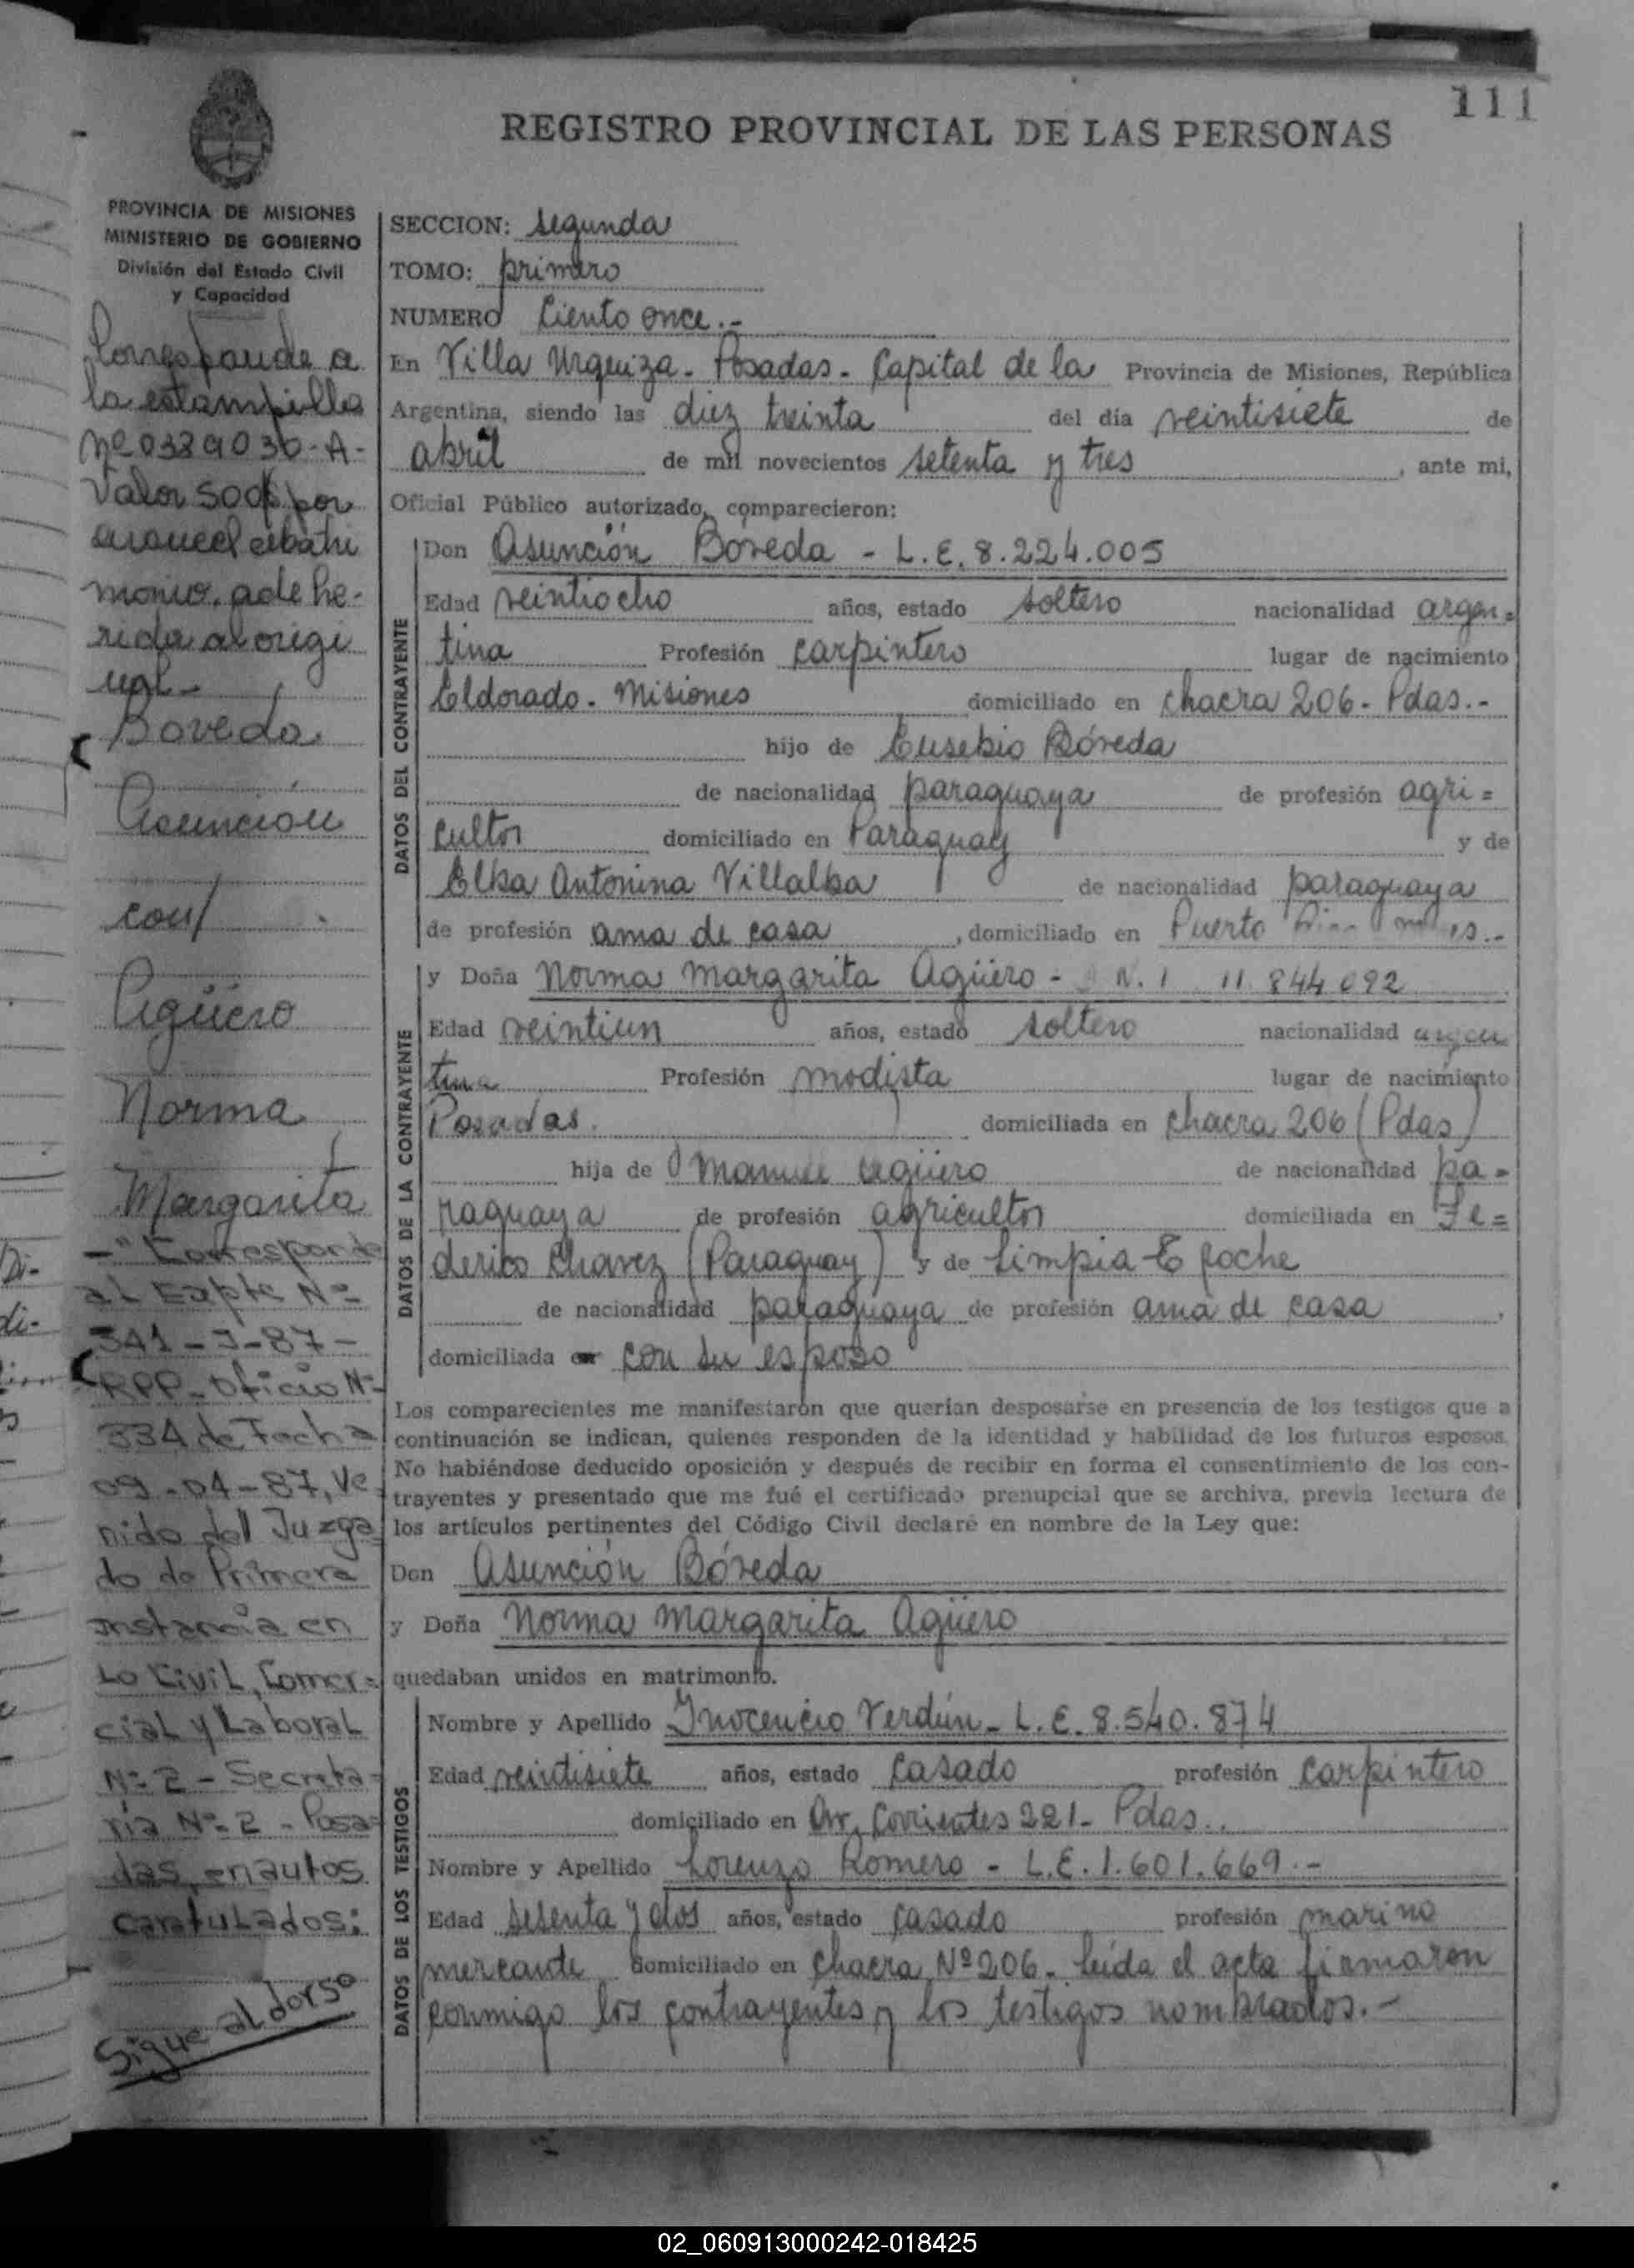 111
REGISTRO PROVINCIAL DE LAS PERSONAS
PROVINCIA DE MISIONES
MINISTERIO DE GOBIERNO
División del Estado Civil
y Capacidad
Corresponde a
la estampilla
Nº 0389030-A-
Valor 500$ por
arancel
monio, adhe-
rida al origi
nal-
Boveda
Asunción
con/
Agüero
Norma
Margarita
-"Corresponde
al Expte Nº
341-J-87-
RPP-Oficio Nº
334 de Fecha
09-04-87, Ve
nido del Juzga
do de Primera
Instancia en
Lo Civil, Comer=
cial y Laboral
Nº 2 - Secreta-
ría Nº 2 - Posa=
das, en autos
caratulados:
Sigue al dorso
SECCION: Segunda
TOMO: primero
NUMERO Ciento once.-
En Villa Urquiza - Posadas - Capital de la Provincia de Misiones, República
Argentina, siendo las diez treinta del día veintisiete de
abril de mil novecientos setenta y tres, ante mi,
Oficial Público autorizado, comparecieron:
DATOS DEL CONTRAYENTE
Don Asunción Bóveda - L.E. 8.224.005
Edad veintiocho años, estado soltero nacionalidad argen=
tina Profesión carpintero lugar de nacimiento
Eldorado - Misiones domiciliado en chacra 206 - Pdas.-
hijo de Eusebio Bóveda
de nacionalidad paraguaya de profesión agri=
cultor domiciliado en Paraguay y de
Elba Antonina Villalba de nacionalidad paraguaya
de profesión ama de casa, domiciliado en Puerto
DATOS DE LA CONTRAYENTE
y Doña Norma Margarita Agüero - D.N.I 11.844.092
Edad veintiun años, estado soltero nacionalidad argen
tina Profesión modista lugar de nacimiento
Posadas. domiciliada en chacra 206 (Pdas)
hija de Manuel Agüero de nacionalidad pa=
raguaya de profesión agricultor domiciliada en Fe=
derico Chavez (Paraguay) y de Limpia E Roche
de nacionalidad paraguaya de profesión ama de casa
domiciliada en con su esposo
Los comparecientes me manifestarón que querían desposarse en presencia de los testigos que a
continuación se indican, quienes responden de la identidad y habilidad de los futuros esposos.
No habiéndose deducido oposición y después de recibir en forma el consentimiento de los con-
trayentes y presentado que me fué el certificado prenupcial que se archiva, previa lectura de
los artículos pertinentes del Código Civil declaré en nombre de la Ley que:
Don Asunción Bóveda
y Doña Norma Margarita Agüero
quedaban unidos en matrimonio.
DATOS DE LOS TESTIGOS
Nombre y Apellido Inocencio Verdún - L.E. 8.540.874
Edad veintisiete años, estado casado profesión carpintero
domiciliado en Av. Corrientes 221 - Pdas..
Nombre y Apellido Lorenzo Romero - L.E. 1.601.669.-
Edad sesenta y dos años, estado casado profesión marino
mercante domiciliado en chacra Nº 206 - Leída el acta firmaron
conmigo los contrayentes y los testigos nombrados.-
02_060913000242-018425